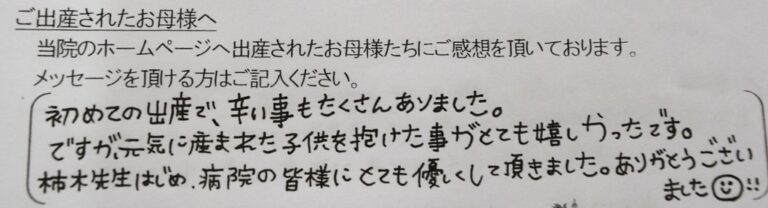 ご出産されたお母様へ
当院のホームページへ出産されたお母様たちにご感想を頂いております。
メッセージを頂ける方はご記入ください。
初めての出産で、辛い事もたくさんありました。
ですが、元気に産まれた子供を抱けた事がとても嬉しかったです。
柿木先生はじめ、病院の皆様にとても優しくして頂きました。ありがとうござい
ました☺!!